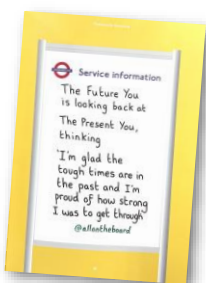 Service information
The Future You
is looking back at
The Present You,
thinking
'I'm glad the
tough times are in
the past and I'm
proud of how strong
I was to get through
@allontheboard